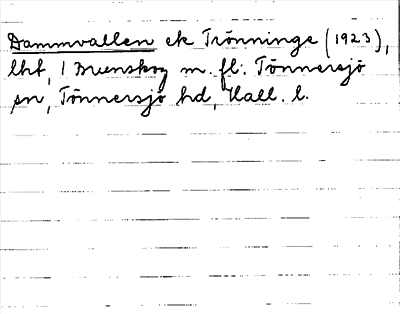 Dammvallen ek Trönninge (1923),
lht, 1 Brunskog m. fl. Tönnersjö
sn, Tönnersjö hd, Hall. l.